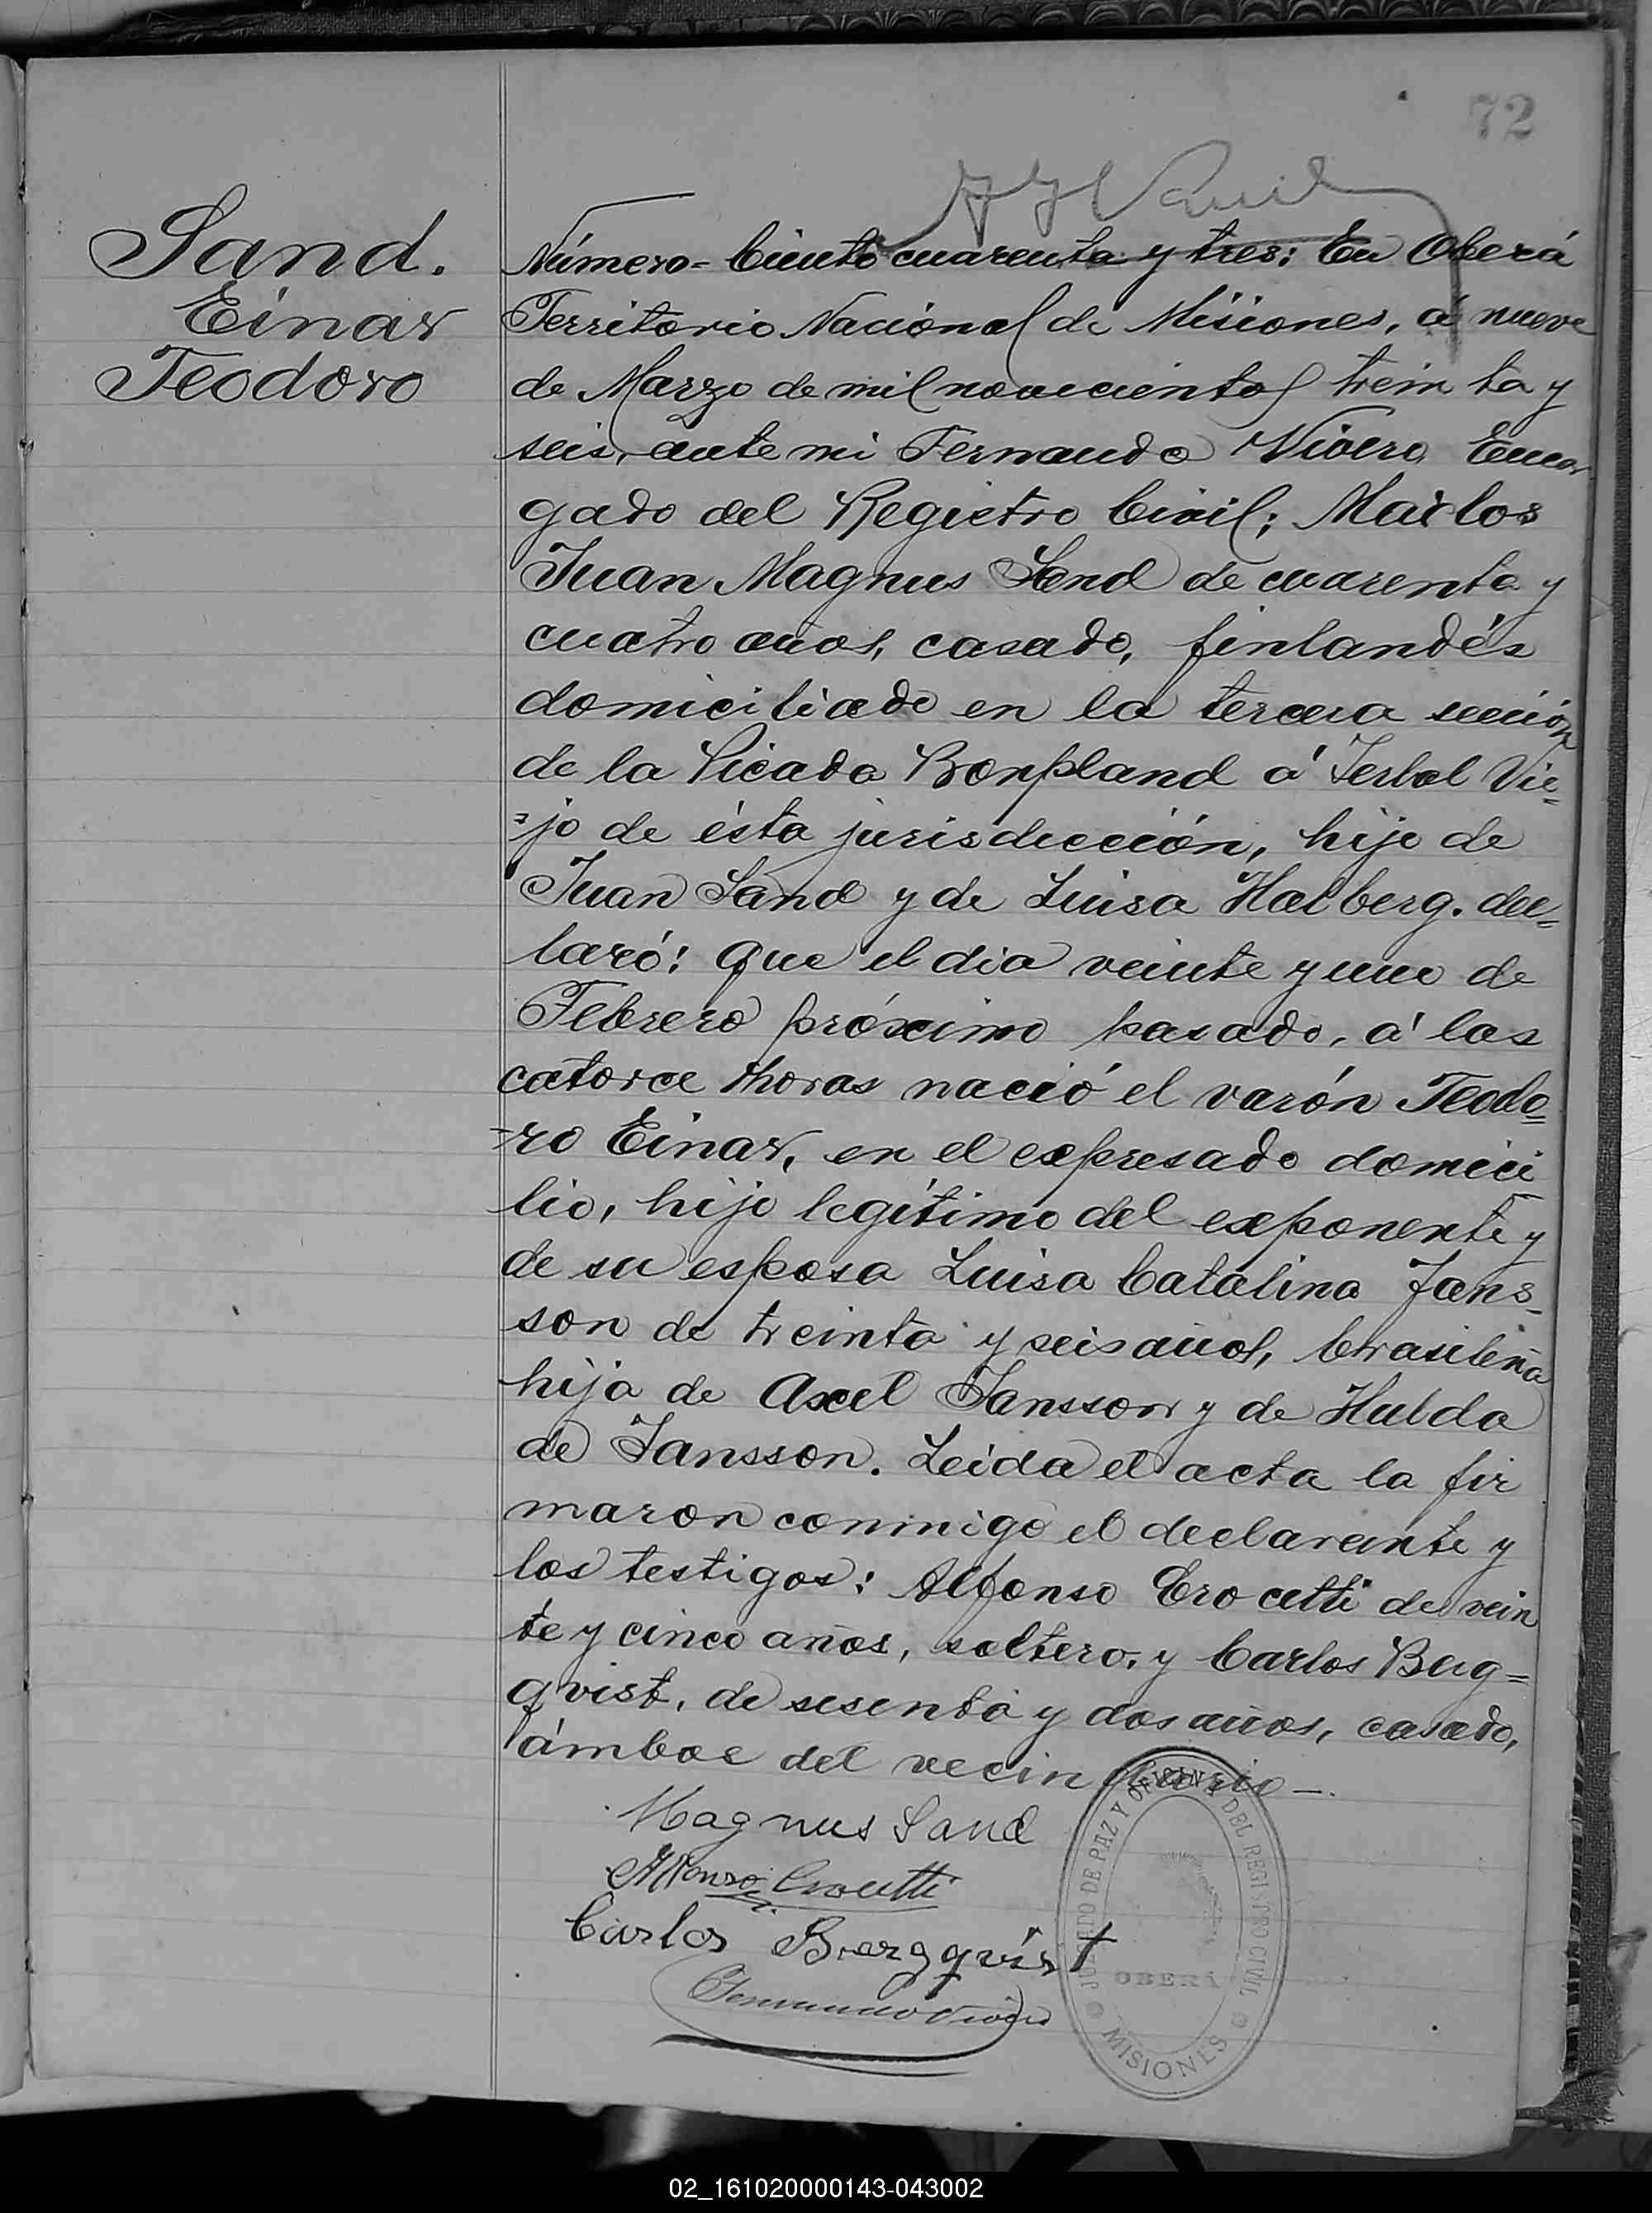 72
Sand.
Einar
Teodoro
Número- Ciento cuarenta y tres: En Oberá
Territorio Nacional de Misiones, á nueve
de Marzo de mil novecientos trein ta y
seis, ante mi Fernando Vivero Encar
gado del Registro Civil; Marlos
Juan Magnus Sand de cuarenta y
cuatro años, casado, finlandés
domiciliado en la tercera sección
de la Picada Bonpland á Yerbal Vie=
=jo de ésta jurisdicción, hijo de
Juan Sand y de Luisa Halberg. dec=
laró: que el dia veinte y uno de
Febrero próximo pasado, á las
catorce horas nació el varón Teodo=
=ro Einar, en el expresado domici
lio, hijo legítimo del exponente y
de su esposa Luisa Catalina Jans=
son de treinta y seis años, brasileña
hija de Axel Jansson y de Hulda
de Jansson. Leida el acta la fir
maron conmigo el declarante y
los testigos: Alfonso Crocetti de vein
te y cinco años, soltero, y Carlos Berg=
qvist, de sesenta y dos años, casado,
ámbos del vecindario-.
Magnus Sand
Alfonso Crocetti
Carlos Bergqvist
Fernando Vivero
JUZGADO DE PAZ Y OFICINA DEL REGISTRO CIVIL
OBERÁ
MISIONES
02_161020000143-043002